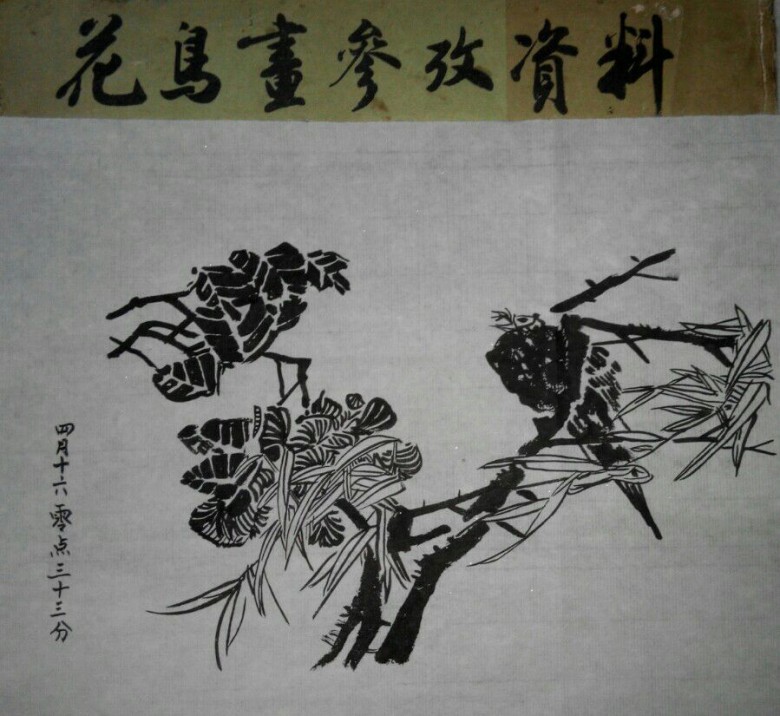 花鳥畫參攷資料
四月十六零点三十三分